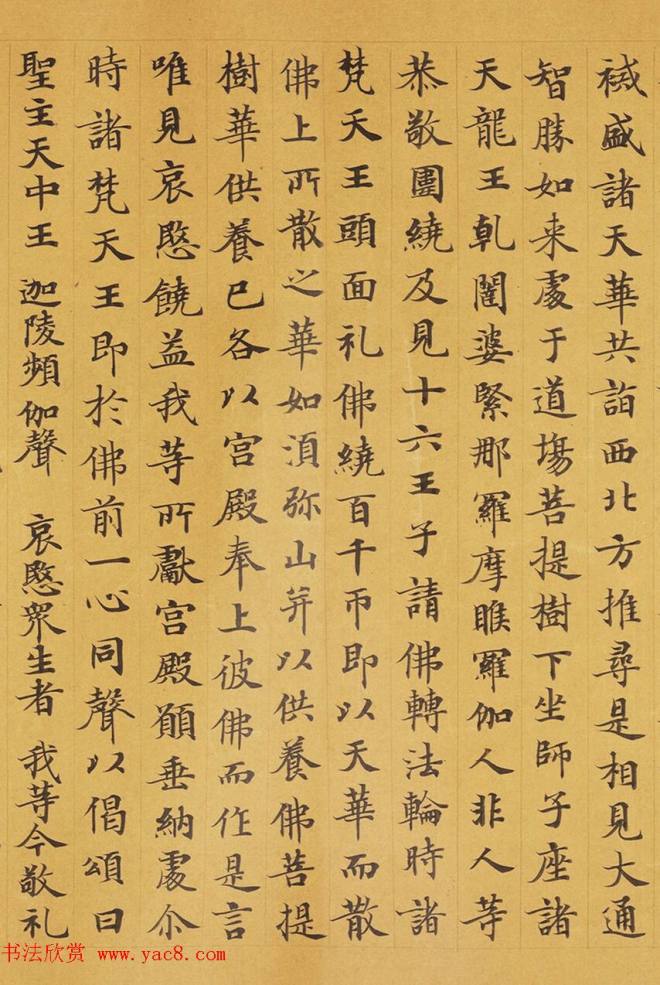 裓盛諸天華共詣西北方推尋是相見大通
智勝如来處于道場菩提樹下坐師子座諸
天龍王乹闥婆緊那羅摩睺羅伽人非人等
恭敬圍繞及見十六王子請佛轉法輪時諸
梵天王頭面礼佛繞百千帀即以天華而散
佛上所散之華如湏弥山并以供養佛菩提
樹華供養已各以宫殿奉上彼佛而作是言
唯見哀愍饒益我等所獻宫殿願垂納處尒
時諸梵天王即於佛前一心同聲以偈頌曰
聖主天中王 迦陵頻伽聲 哀愍衆生者 我等今敬礼
书法欣赏 www.yac8.com